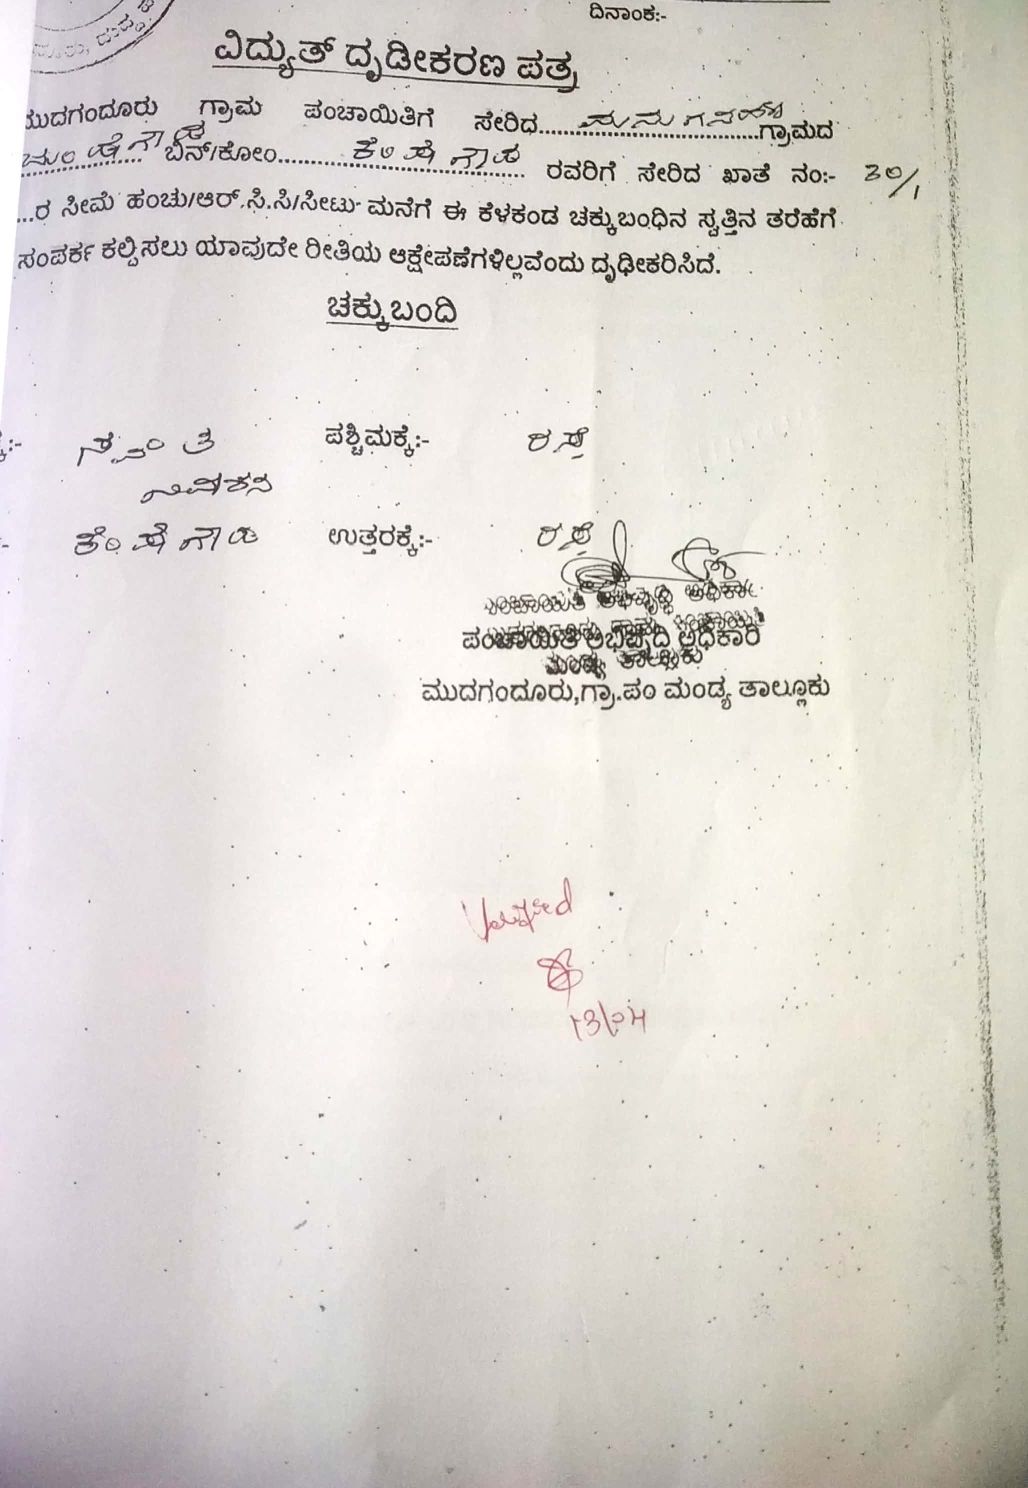 ದಿನಾಂಕ:-
ವಿದ್ಯುತ್ ದೃಡೀಕರಣ ಪತ್ರ
ಮುದಗಂದೂರು ಗ್ರಾಮ ಪಂಚಾಯಿತಿಗೆ ಸೇರಿಧ........................ಗ್ರಾಮದ
.................. ಬಿನ್/ಕೋಂ........ ಕೆಂಪೇಗೌಡ ........ ರವರಿಗೆ ಸೇರಿದ ಖಾತೆ ನಂ:- 30/1
...ರ ಸೀಮೆ ಹಂಚು/ಆರ್.ಸಿ.ಸಿ/ಸೀಟು ಮನೆಗೆ ಈ ಕೆಳಕಂಡ ಚಕ್ಕುಬಂಧಿನ ಸ್ವತ್ತಿನ ತರೆಹೆಗೆ
ಸಂಪರ್ಕ ಕಲ್ಪಿಸಲು ಯಾವುದೇ ರೀತಿಯ ಆಕ್ಷೇಪಣೆಗಳಿಲ್ಲವೆಂದು ದೃಢೀಕರಿಸಿದೆ.
ಚಕ್ಕುಬಂದಿ
ಸ್ವಂತ ಪಶ್ಚಿಮಕ್ಕೆ:- ರಸ್ತೆ
ಕೆಂಪೇಗೌಡ ಉತ್ತರಕ್ಕೆ:- ರಸ್ತೆ
ಪಂಚಾಯಿತಿ ಅಭಿವೃದ್ದಿ ಅಧಿಕಾರಿ
ಮಂಡ್ಯ ತಾಲ್ಲೂಕು
ಮುದಗಂದೂರು,ಗ್ರಾ.ಪಂ ಮಂಡ್ಯ ತಾಲ್ಲೂಕು